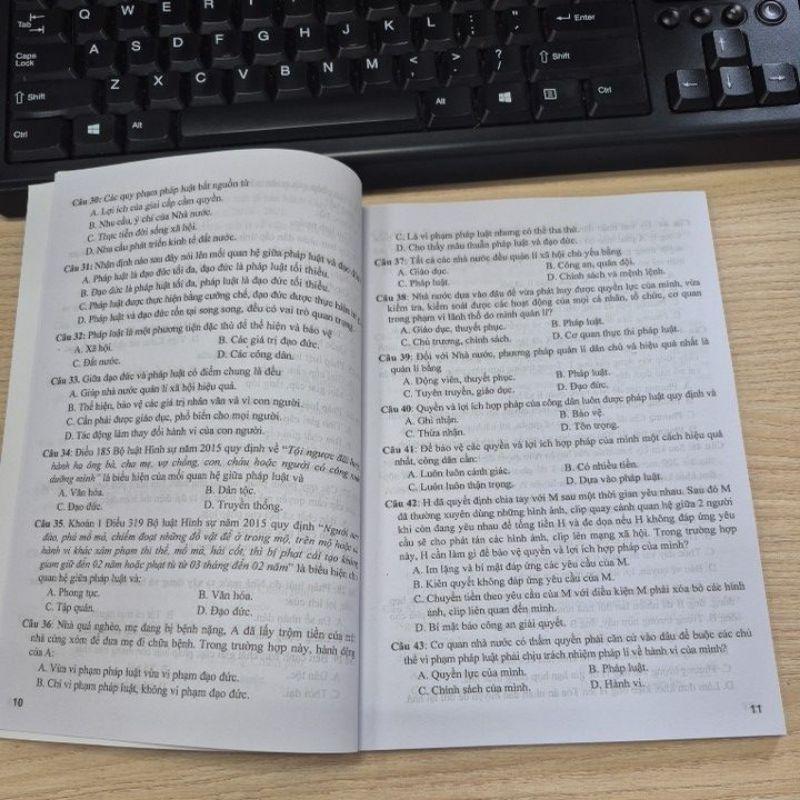 Tab
Q W E R
O P
Enter
Caps Lock
A S D F G H J K L
Shift
Z X C V B N M
Shift
Ctrl
Alt
Alt
Ctrl
Câu 30: Các quy phạm pháp luật bắt nguồn từ
A. Lợi ích của giai cấp cầm quyền.
B. Nhu cầu, ý chí của Nhà nước.
C. Thực tiễn đời sống xã hội.
D. Nhu cầu phát triển kinh tế đất nước.
Câu 31: Nhận định nào sau đây nói lên mối quan hệ giữa pháp luật và đạo
A. Pháp luật là đạo đức tối đa, đạo đức là pháp luật tối thiểu.
B. Đạo đức là pháp luật tối đa, pháp luật là đạo đức tối thiểu.
C. Pháp luật được thực hiện bằng cưỡng chế, đạo đức được thực hiện
D. Pháp luật và đạo đức tồn tại song song, đều có vai trò quan trọng.
Câu 32: Pháp luật là một phương tiện đặc thù để thể hiện và bảo vệ
A. Xã hội. B. Các giá trị đạo đức.
C. Đất nước. D. Các công dân.
Câu 33. Giữa đạo đức và pháp luật có điểm chung là đều
A. Giúp nhà nước quản lí xã hội hiệu quả.
B. Thể hiện, bảo vệ các giá trị nhân văn và vì con người.
C. Cần phải được giáo dục, phổ biến cho mọi người.
D. Tác động làm thay đổi hành vi của con người.
Câu 34: Điều 185 Bộ luật Hình sự năm 2015 quy định về “Tội ngược đãi
hành hạ ông bà, cha mẹ, vợ chồng, con, cháu hoặc người có công
dưỡng mình” là biểu hiện của mối quan hệ giữa pháp luật và
A. Văn hóa. B. Dân tộc.
C. Đạo đức. D. Truyền thống.
Câu 35. Khoản 1 Điều 319 Bộ luật Hình sự năm 2015 quy định “Người
đào, phá mồ mả, chiếm đoạt những đồ vật để ở trong mộ, trên mộ hoặc
hành vi khác xâm phạm thi thể, mồ mả, hài cốt, thì bị phạt cải tạo không
giam giữ đến 02 năm hoặc phạt tù từ 03 tháng đến 02 năm” là biểu hiện
quan hệ giữa pháp luật và:
A. Phong tục. B. Văn hóa.
C. Tập quán. D. Đạo đức.
Câu 36: Nhà quá nghèo, mẹ đang bị bệnh nặng, A đã lấy trộm tiền của
nhà cùng xóm để đưa mẹ đi chữa bệnh. Trong trường hợp này, hành động
của A:
A. Vừa vi phạm pháp luật vừa vi phạm đạo đức.
B. Chỉ vi phạm pháp luật, không vi phạm đạo đức.
10
C. Là vi phạm pháp luật nhưng có thể tha thứ.
D. Cho thấy mâu thuẫn pháp luật và đạo đức.
Câu 37: Tất cả các nhà nước đều quản lí xã hội chủ yếu bằng
A. Giáo dục. B. Công an, quân đội.
C. Pháp luật. D. Chính sách và mệnh lệnh.
Câu 38: Nhà nước dựa vào đâu để vừa phát huy được quyền lực của mình, vừa
kiểm tra, kiểm soát được các hoạt động của mọi cá nhân, tổ chức, cơ quan
trong phạm vi lãnh thổ do mình quản lí?
A. Giáo dục, thuyết phục. B. Pháp luật.
C. Chủ trương, chính sách. D. Cơ quan thực thi pháp luật.
Câu 39: Đối với Nhà nước, phương pháp quản lí dân chủ và hiệu quả nhất là
quản lí bằng
A. Động viên, thuyết phục. B. Pháp luật.
C. Tuyên truyền, giáo dục. D. Đạo đức.
Câu 40: Quyền và lợi ích hợp pháp của công dân luôn được pháp luật quy định và
A. Ghi nhận. B. Bảo vệ.
C. Thừa nhận. D. Tôn trọng.
Câu 41: Để bảo vệ các quyền và lợi ích hợp pháp của mình một cách hiệu quả
nhất, công dân cần:
A. Luôn luôn cảnh giác. B. Có nhiều tiền.
C. Luôn luôn thận trọng. D. Dựa vào pháp luật.
Câu 42: H đã quyết định chia tay với M sau một thời gian yêu nhau. Sau đó M
đã thường xuyên dùng những hình ảnh, clip quay cảnh quan hệ giữa 2 người
khi còn đang yêu nhau để tống tiền H và đe dọa nếu H không đáp ứng yêu
cầu sẽ cho phát tán các hình ảnh, clip lên mạng xã hội. Trong trường hợp
này, H cần làm gì để bảo vệ quyền và lợi ích hợp pháp của mình?
A. Im lặng và bí mật đáp ứng các yêu cầu của M.
B. Kiên quyết không đáp ứng yêu cầu của M.
C. Chuyển tiền theo yêu cầu của M với điều kiện M phải xóa bỏ các hình
ảnh, clip liên quan đến mình.
D. Bí mật báo công an giải quyết.
Câu 43: Cơ quan nhà nước có thẩm quyền phải căn cứ vào đâu để buộc các chủ
thể vi phạm pháp luật phải chịu trách nhiệm pháp lí về hành vi của mình?
A. Quyền lực của mình. B. Pháp luật.
C. Chính sách của mình. D. Hành vi.
11